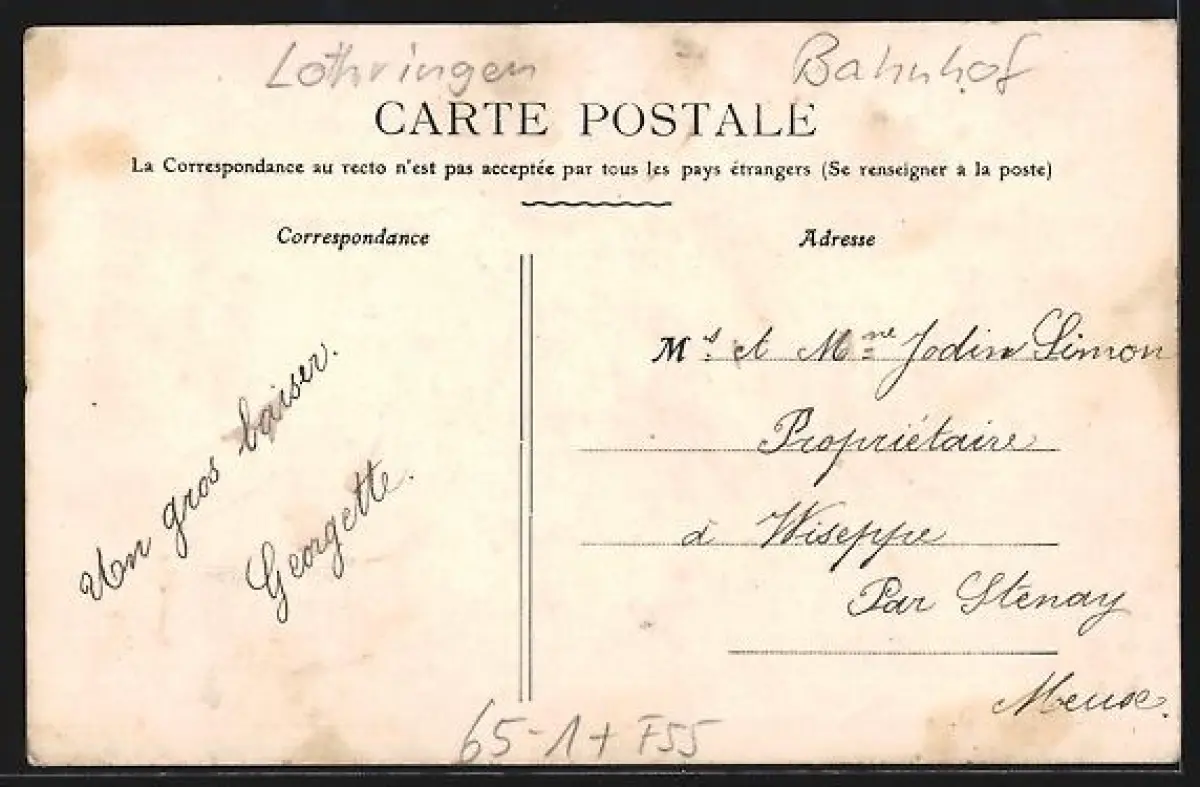 Lothringen Bahnhof
CARTE POSTALE
La Correspondance au recto n'est pas acceptée par tous les pays étrangers (Se renseigner à la poste)
Correspondance
Un gros baiser.
Georgette.
Adresse
Mr. et Mme Jodin Simon
Propriétaire
à Wiseppe
Par Stenay
Meuse.
65-1+ F55